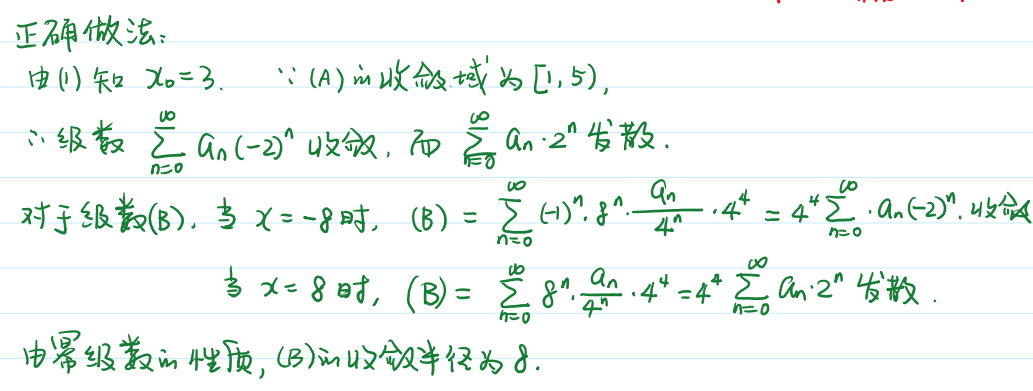 正确做法:
由(1)知 x₀=3. ∵ (A)的收敛域为[1,5),
∴级数 ∑_{n=0}^{∞} aₙ(-2)ⁿ 收敛, 而 ∑_{n=0}^{∞} aₙ·2ⁿ 发散.
对于级数(B), 当 x=-8时, (B) = ∑_{n=0}^{∞} (-1)ⁿ·8ⁿ·aₙ/4ⁿ·4⁴ = 4⁴∑_{n=0}^{∞}·aₙ(-2)ⁿ. 收敛
当 x=8时, (B) = ∑_{n=0}^{∞} 8ⁿ·aₙ/4ⁿ·4⁴ = 4⁴∑_{n=0}^{∞} aₙ·2ⁿ 发散.
由幂级数的性质, (B)的收敛半径为8.